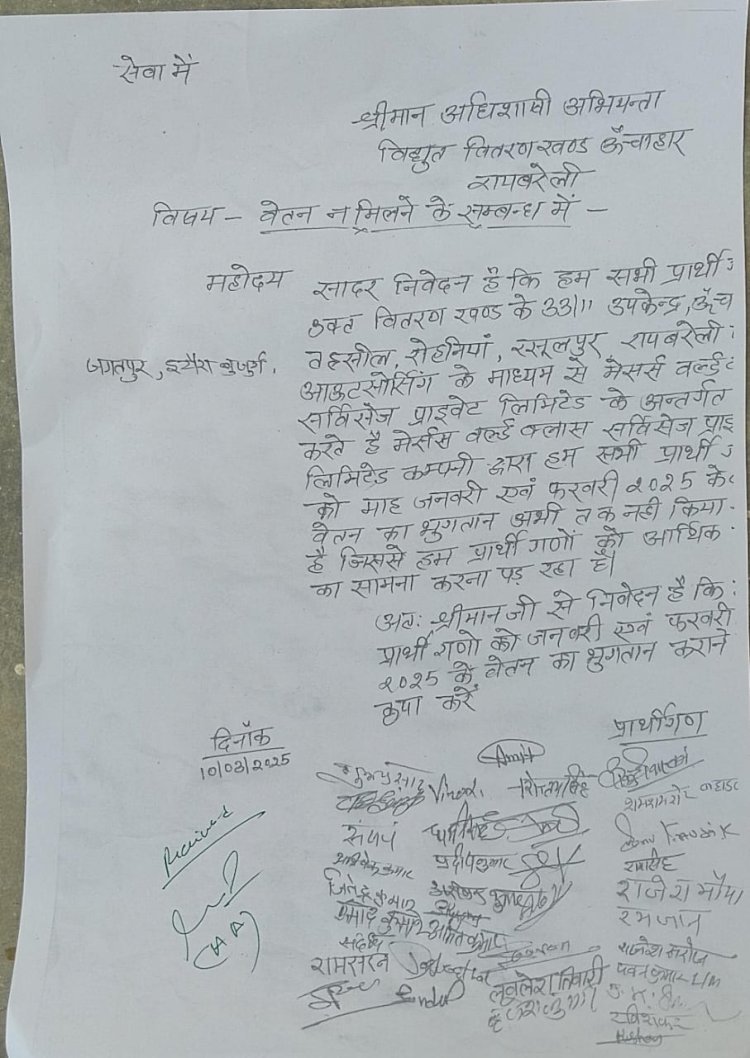 सेवा में
श्रीमान अधिशाषी अभियन्ता
विद्युत वितरण खण्ड ऊँचाहार
रायबरेली
विषय - वेतन न मिलने के सम्बन्ध में -
महोदय
सादर निवेदन है कि हम सभी प्रार्थी
उक्त वितरण खण्ड के 33/11 उपकेन्द्र, ऊँच
जगतपुर, इटौरा बुजुर्ग,
तहसील, रोहनियां, रसूलपुर रायबरेली
आऊटसोर्सिंग के माध्यम से मेसर्स वर्ल्ड
सर्विसेज प्राइवेट लिमिटेड के अन्तर्गत
करते है मेर्सस वर्ल्ड क्लास सर्विसेज प्राइ
लिमिटेड कम्पनी द्वारा हम सभी प्रार्थी
को माह जनवरी एवं फरवरी 2025 के
वेतन का भुगतान अभी तक नही किया
है जिससे हम प्रार्थी गणों को आर्थिक
का सामना करना पड़ रहा है।
अतः श्रीमान जी से निवेदन है कि
प्रार्थी गणो को जनवरी एवं फरवरी
2025 के वेतन का भुगतान कराने
कृपा करें
प्रार्थीगण
दिनाँक
10/03/2025
Received
Amit
Vinod
संजय
प्रदीप कुमार
जितेन्द्र कुमार
राजेश मौर्या
रमजान
अमित कुमार
संदीप
राजेश सरोज
रामसरन
लवलेश तिवारी
पवन कुमार L/M
रविशंकर